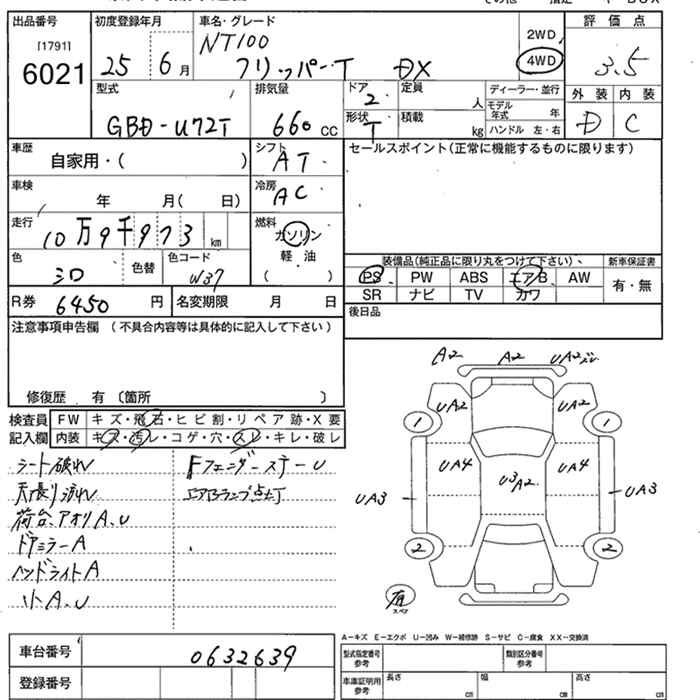 出品番号
[1791]
6021
初度登録年月
25 6月
車名・グレード
NT100
クリッパーT DX
2WD
4WD
評価点
3.5
型式
GBD-U72T
排気量
660 CC
ドア
2
定員
人
ディーラー・並行
モデル年式 年
ハンドル 左・右
形状
T
積載
kg
外装 内装
D C
車歴
自家用・( )
シフト
AT
セールスポイント(正常に機能するものに限ります)
車検
年 月( 日)
冷房
AC
走行
10万9千973 km
燃料
ガソリン
軽油
( )
色
シロ
色替
色コード
W37
装備品(純正品に限り丸をつけて下さい)、
新車保証書
PS PW ABS エアB AW
SR ナビ TV カワ
有・無
R券 6450 円
名変期限 月 日
後日品
注意事項申告欄 (不具合内容等は具体的に記入して下さい)
修復歴 有 〔箇所 〕
検査員記入欄
FW キズ・飛石・ヒビ割・リペア跡・X要
内装 キズ・汚レ・コゲ・穴・スレ・キレ・破レ
シート破れ
天張り汚れ
荷台、アオリA、U
ドアミラーA
ヘッドライトA
小A、U
FフェンダーステーU
エアBランプ点灯
A2 A2 UA2
UA2 UA2
1 1
UA4 U3 A2 UA4
UA3 UA3
2 2
有
スペア
A−キズ E−エクボ U−凹み W−補修跡 S−サビ C−腐食 XX−交換済
車台番号 0632639
型式指定番号
参考
類別区分番号
参考
登録番号
車庫証明用
参考
長さ cm
幅 cm
高さ cm